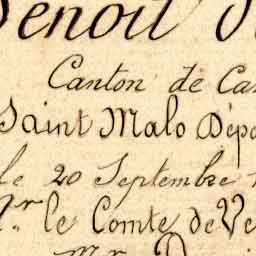 Benoit
Canton de Ca
Saint Malo Dépa
le 20 Septembre
Mr. le Comte de Ve